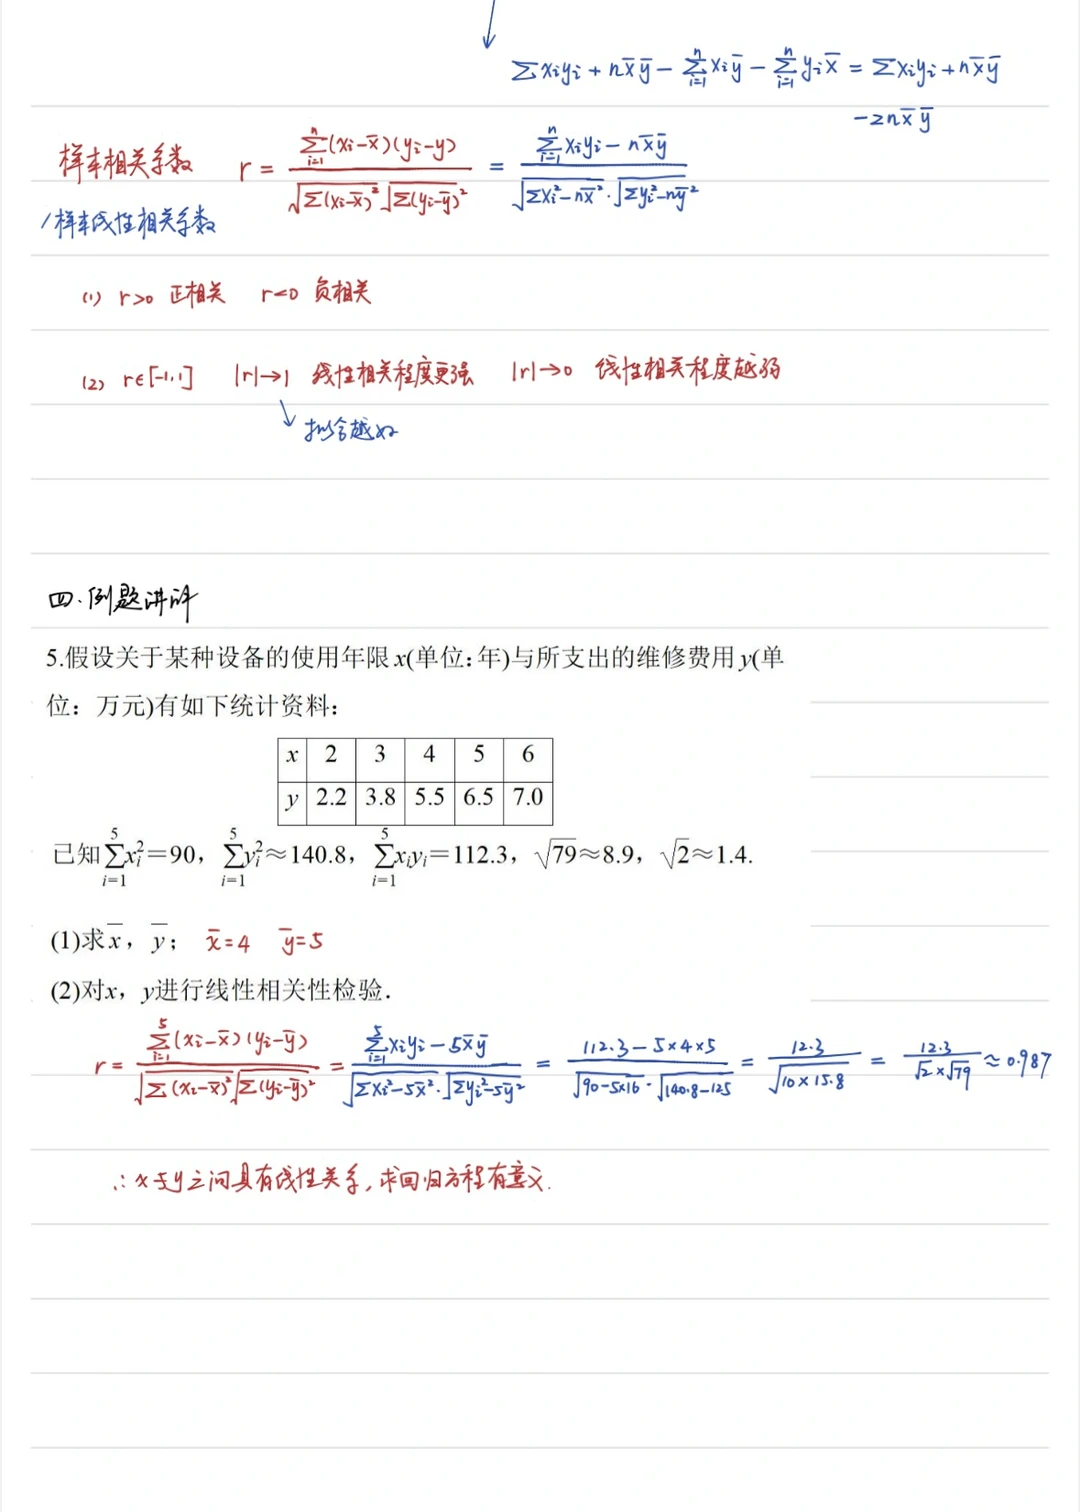 ∑xᵢyᵢ + nx̄ȳ − ∑ⁿᵢ₌₁xᵢȳ − ∑ⁿᵢ₌₁yᵢx̄ = ∑xᵢyᵢ + nx̄ȳ
−2nx̄ȳ
样本相关系数 r = ∑ⁿᵢ₌₁(xᵢ−x̄)(yᵢ−y) / √∑(xᵢ−x̄)² √∑(yᵢ−ȳ)² = ∑ⁿᵢ₌₁xᵢyᵢ − nx̄ȳ / √∑xᵢ²−nx̄² · √∑yᵢ²−nȳ²
/样本线性相关系数
(1) r>0 正相关 r<0 负相关
(2) r∈[-1,1] |r|→1 线性相关程度更强 |r|→0 线性相关程度越弱
拟合越好
四.例题讲评
5.假设关于某种设备的使用年限x(单位:年)与所支出的维修费用y(单
位：万元)有如下统计资料：
x 2 3 4 5 6
y 2.2 3.8 5.5 6.5 7.0
已知∑⁵ᵢ₌₁xᵢ²=90，∑⁵ᵢ₌₁yᵢ²≈140.8，∑⁵ᵢ₌₁xᵢyᵢ=112.3，√79≈8.9，√2≈1.4.
(1)求x̄，ȳ； x̄=4 ȳ=5
(2)对x，y进行线性相关性检验.
r = ∑⁵ᵢ₌₁(xᵢ−x̄)(yᵢ−ȳ) / √∑(xᵢ−x̄)² √∑(yᵢ−ȳ)² = ∑⁵ᵢ₌₁xᵢyᵢ − 5x̄ȳ / √∑xᵢ²−5x̄² · √∑yᵢ²−5ȳ² = 112.3−5×4×5 / √90−5×16 · √140.8−125 = 12.3 / √10×15.8 = 12.3 / √2×√79 ≈ 0.987
∴x与y之间具有线性关系,求回归方程有意义.